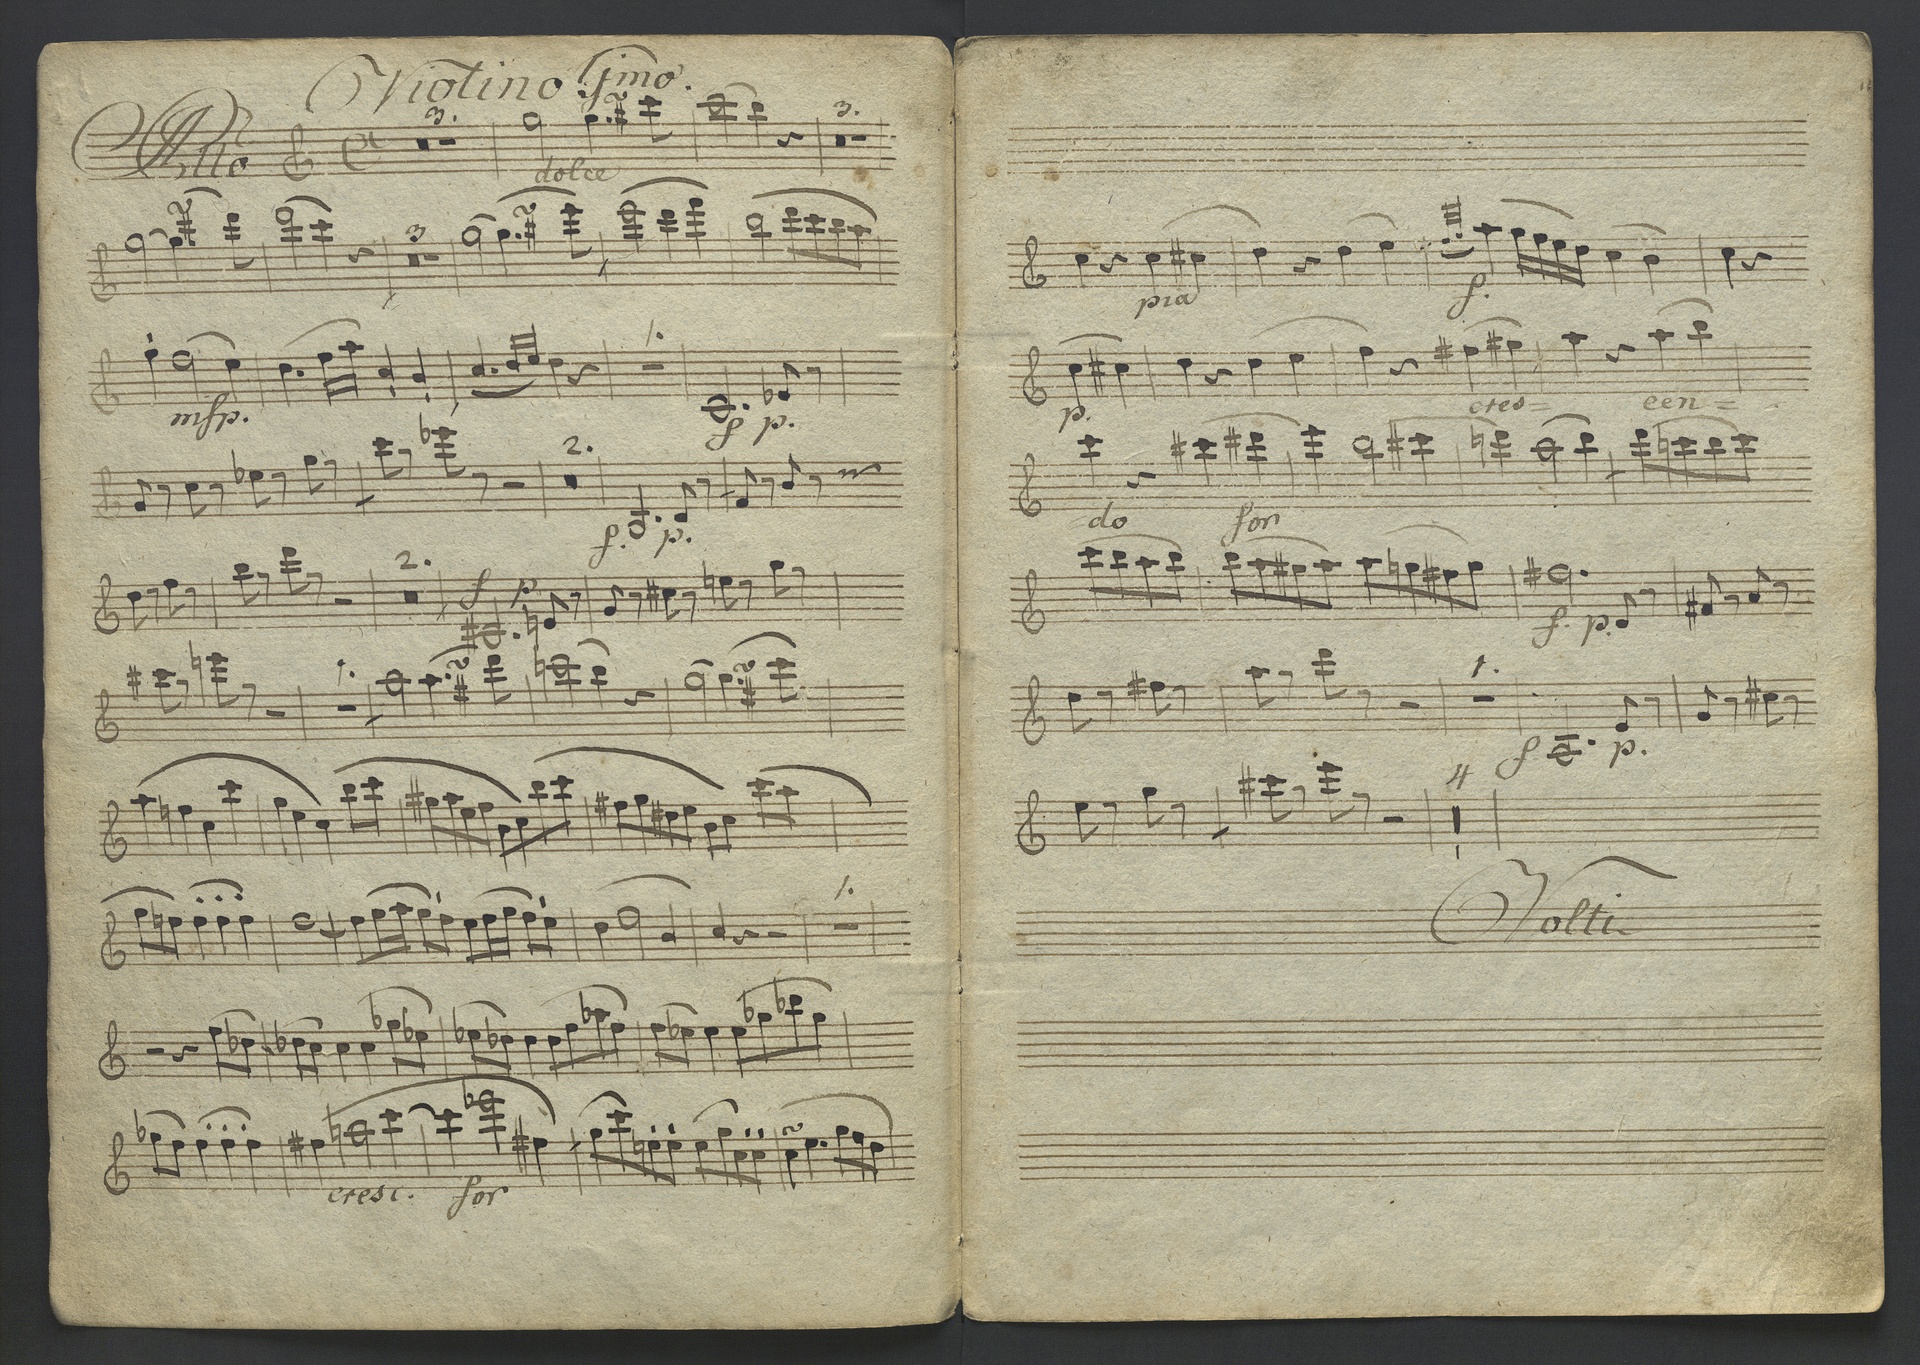 Violino Imo.
3. 3.
Allo
dolce
3
1.
mfp. f p.
2.
f. p.
2. f p
1.
1.
cresc. for
pia f.
p. cres= cen=
do for
f. p.
1.
f p.
4
Volti